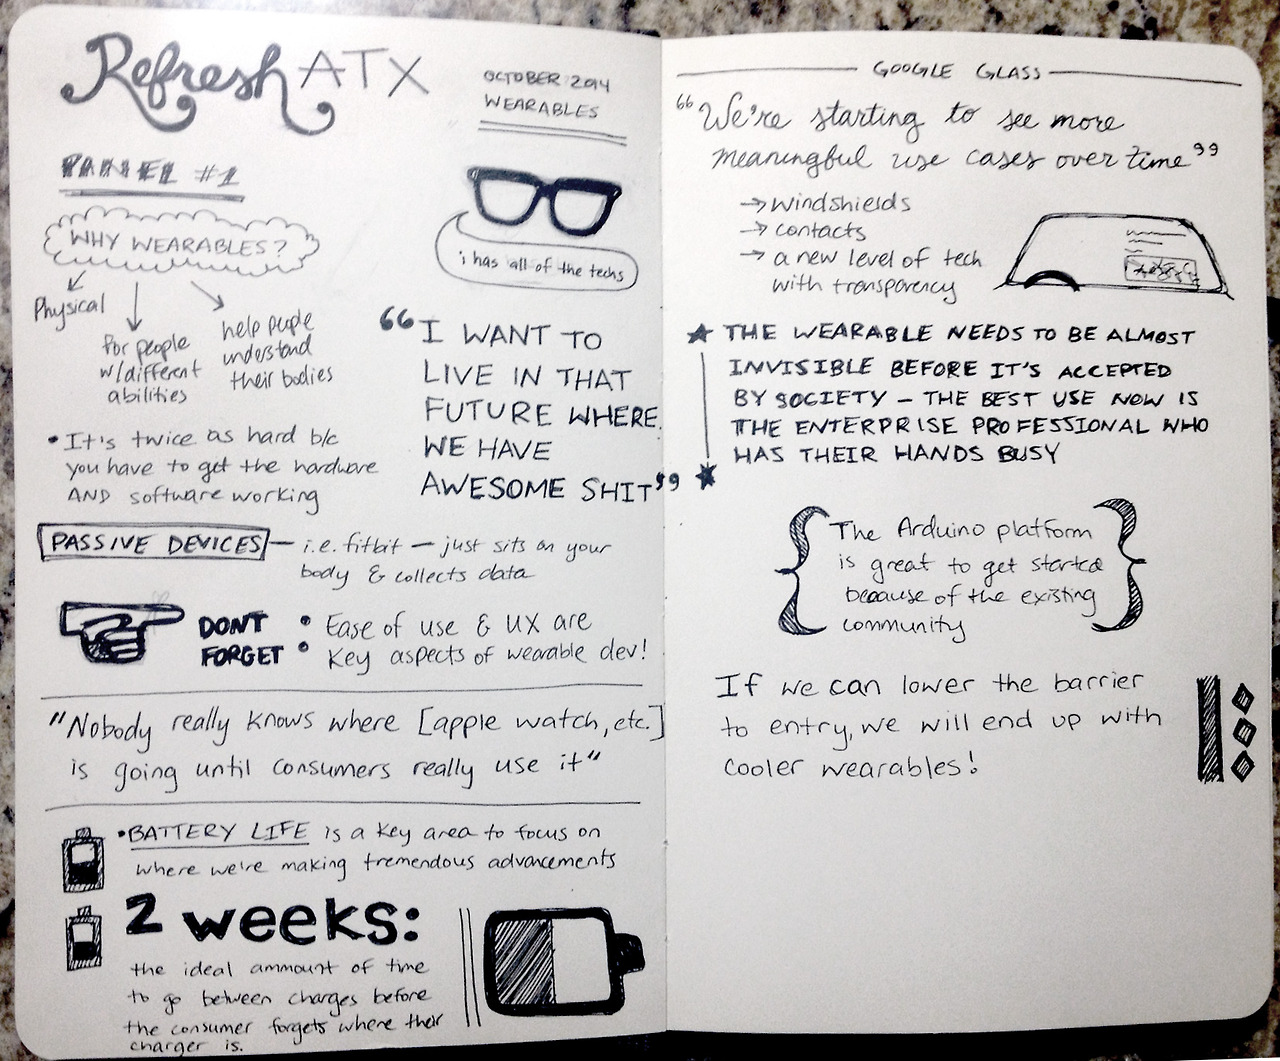 Refresh ATX
OCTOBER 2014
WEARABLES
PANEL #1
WHY WEARABLES?
Physical
for people
w/different
abilities
help people
understand
their bodies
i has all of the techs
"I WANT TO
LIVE IN THAT
FUTURE WHERE
WE HAVE
AWESOME SHIT"
• It's twice as hard b/c
you have to get the hardware
AND software working
PASSIVE DEVICES — i.e. fitbit — just sits on your
body & collects data
DONT FORGET
: Ease of use & UX are
Key aspects of wearable dev!
"Nobody really knows where [apple watch, etc.]
is going until consumers really use it"
• BATTERY LIFE is a key area to focus on
where we're making tremendous advancements
2 weeks:
the ideal ammount of time
to go between charges before
the consumer forgets where their
charger is.
GOOGLE GLASS
"We're starting to see more
meaningful use cases over time"
→ windshields
→ contacts
→ a new level of tech
with transparency
★ THE WEARABLE NEEDS TO BE ALMOST
INVISIBLE BEFORE IT'S ACCEPTED
BY SOCIETY – THE BEST USE NOW IS
THE ENTERPRISE PROFESSIONAL WHO
HAS THEIR HANDS BUSY
{The Arduino platform
is great to get started
because of the existing
community}
If we can lower the barrier
to entry, we will end up with
cooler wearables!